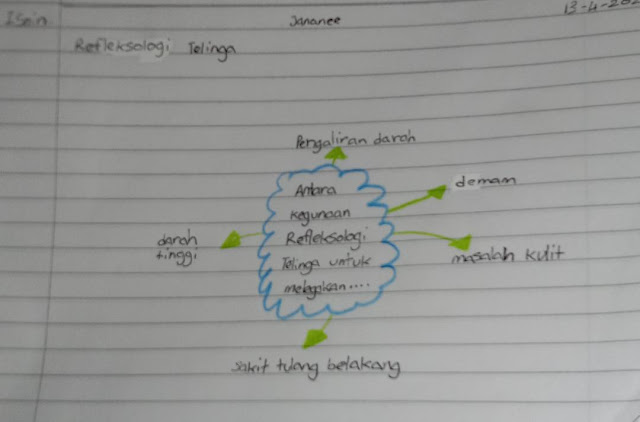 Isnin
Jananee
13-4-202
Refleksologi Telinga
Pengaliran darah
Antara
kegunaan
Refleksologi
Telinga untuk
melegakan....
demam
masalah kulit
darah
tinggi
sakit tulang belakang